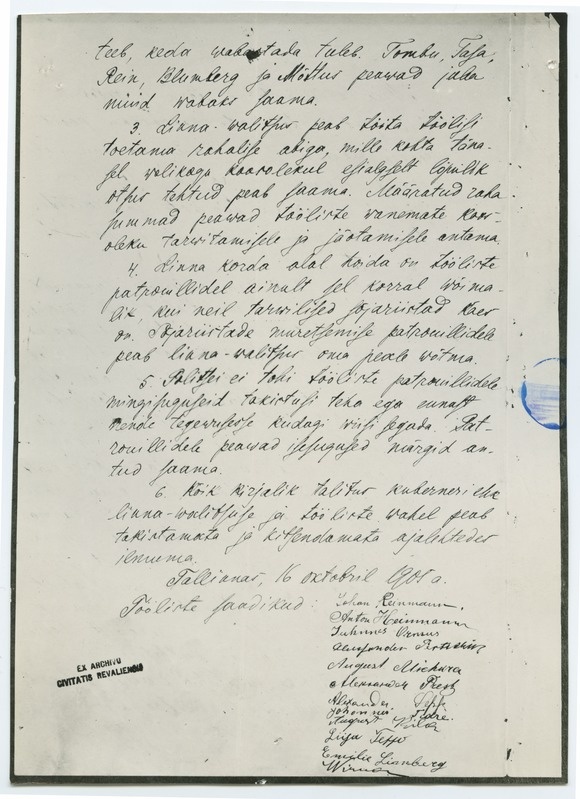 teeb, keda wabastada tuleb. Tombu, Tasa,
Rein, Blumberg ja Mõttus peawad juba
nüüd wabaks saama.
3. Linna-walitsus peab töita töölisi
toetama rahalise abiga, mille kohta täna-
sel wolikogu koosolekul esialgselt lõpulik
otsus tehtud peab saama. Määratud raha
summad peawad tööliste wanemate koos-
oleku tarwitamisele ja jäotamisele antama.
4. Linna korda alal hoida on tööliste
patrouillidel ainult sel korral wõima-
lik, kui neil tarwilised sõjariistad käes
on. Sõjariistade muretsemise patrouillidele
peab linna-walitsus oma peale wõtma.
5. Politsei ei tohi tööliste patrouillidele
mingisuguseid takistusi teha ega ennast
nende tegewusesse kuidagi wiisi segada. Pat-
rouillidele peawad isesugused märgid an-
tud saama.
6. Kõik kirjalik talitus kuberneri ehk
linna-walitsuse ja tööliste wahel peab
takistamata ja kitsendamata ajalehtedes
ilmuma.
Tallinnas, 16 oktobril 1905 a.
Tööliste saadikud:
Johan Reinmann.
Anton Heinmann
Juhannes
Aleksander
August
Aleksander
Alexander Sepp
Johannes
August
Liisa Teppo
Emilie Lianberg
EX ARCHIVO
CIVITATIS REVALIENSIS